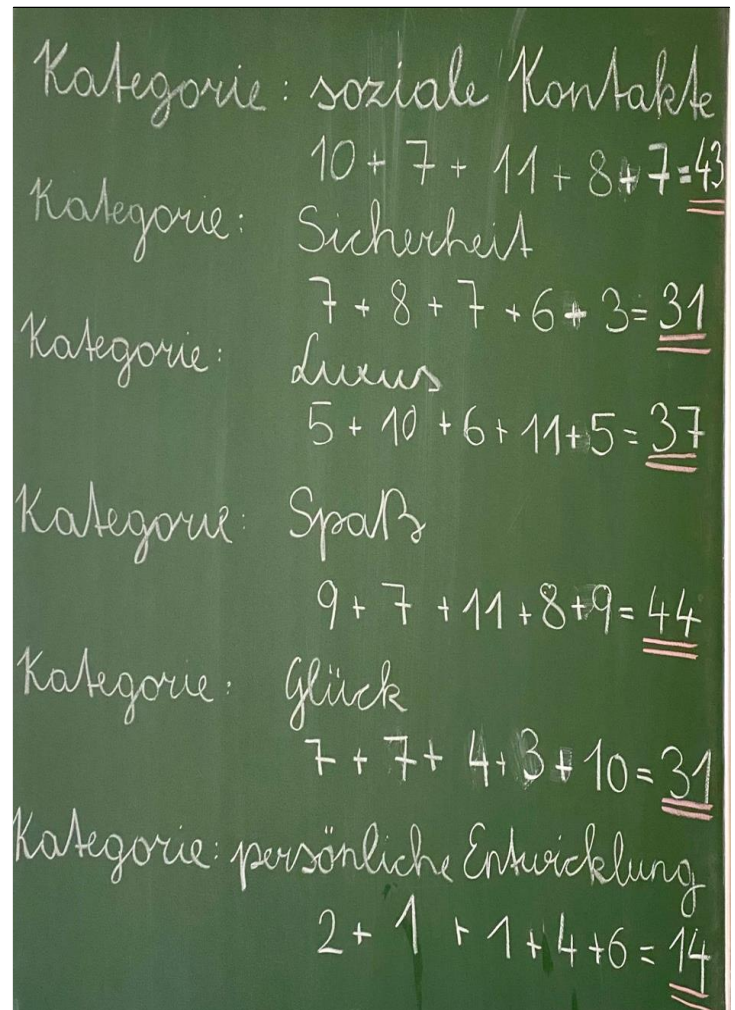 Kategorie: soziale Kontakte
10 + 7 + 11 + 8 + 7 = 43
Kategorie: Sicherheit
7 + 8 + 7 + 6 + 3 = 31
Kategorie: Luxus
5 + 10 + 6 + 11 + 5 = 37
Kategorie: Spaß
9 + 7 + 11 + 8 + 9 = 44
Kategorie: Glück
7 + 7 + 4 + 3 + 10 = 31
Kategorie: persönliche Entwicklung
2 + 1 + 1 + 4 + 6 = 14